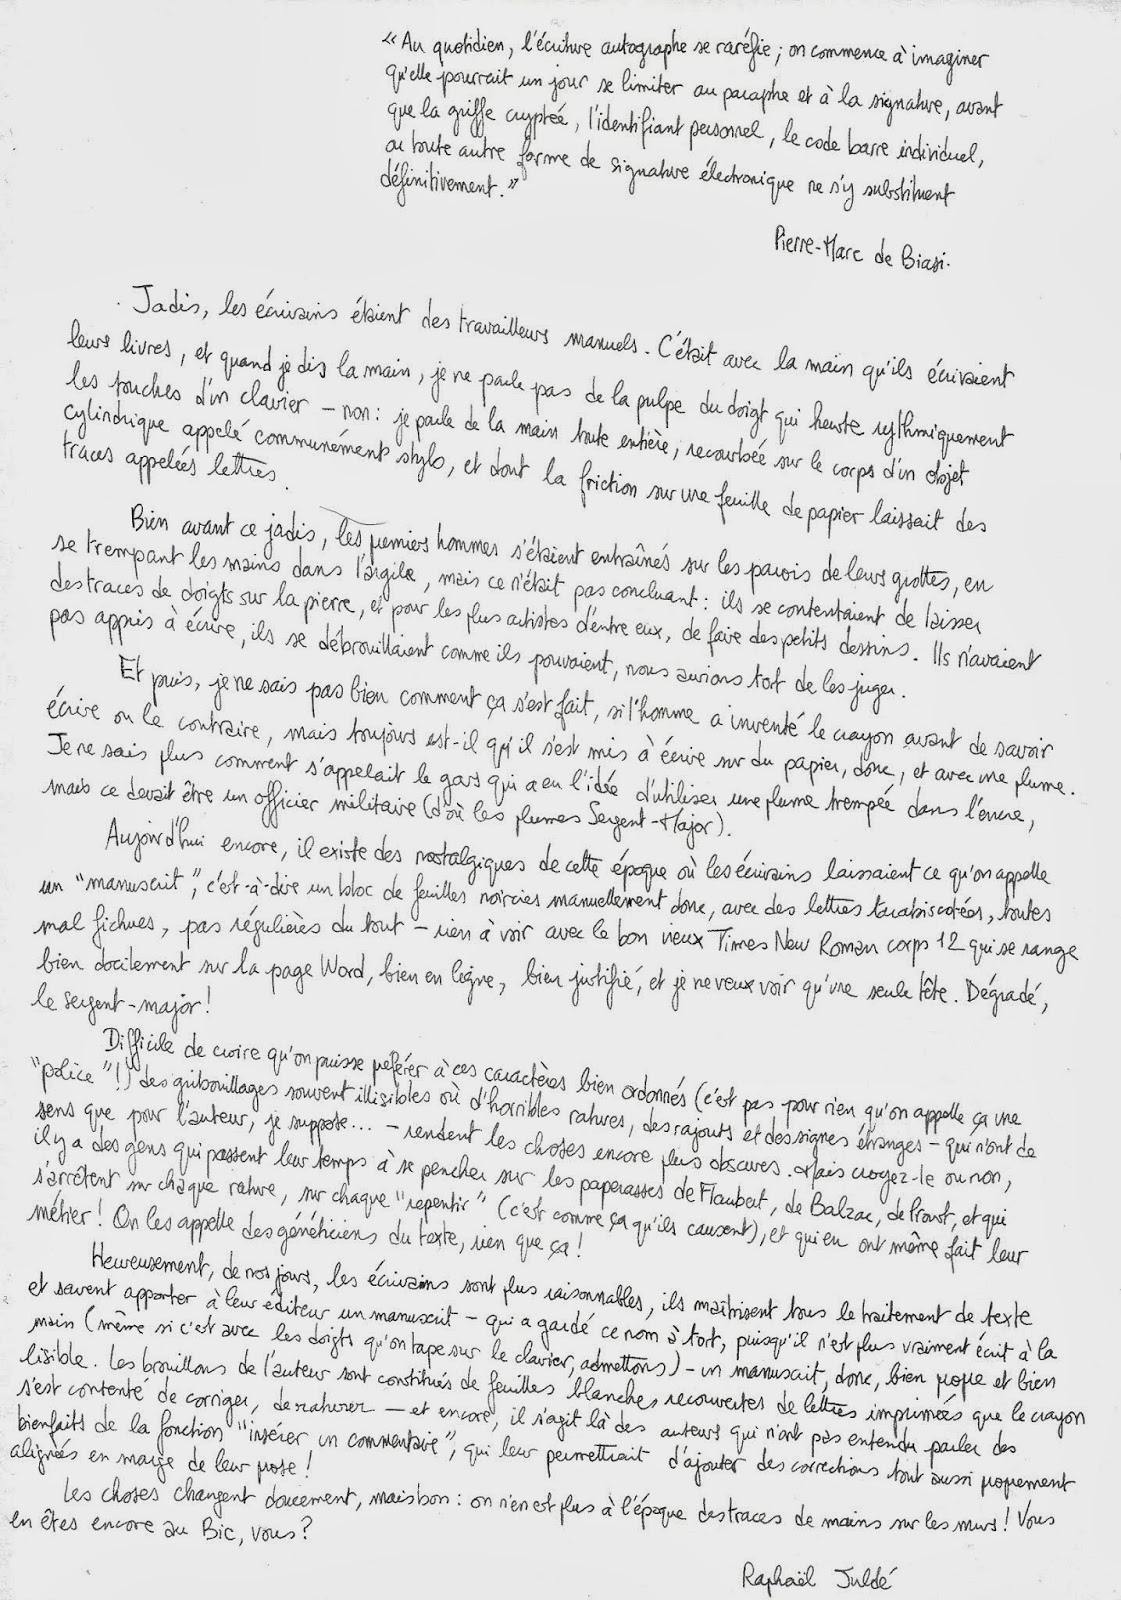 « Au quotidien, l'écriture autographe se raréfie ; on commence à imaginer
qu'elle pourrait un jour se limiter au paraphe et à la signature, avant
que la griffe cryptée, l'identifiant personnel, le code barre individuel,
ou toute autre forme de signature électronique ne s'y substituent
définitivement. »
Pierre-Marc de Biasi.
Jadis, les écrivains étaient des travailleurs manuels. C'était avec la main qu'ils écrivaient
leurs livres, et quand je dis la main, je ne parle pas de la pulpe du doigt qui heurte rythmiquement
les touches d'un clavier – non : je parle de la main toute entière, recourbée sur le corps d'un objet
cylindrique appelé communément stylo, et dont la friction sur une feuille de papier laissait des
traces appelées lettres.
Bien avant ce jadis, les premiers hommes s'étaient entraînés sur les parois de leurs grottes, en
se trempant les mains dans l'argile, mais ce n'était pas concluant : ils se contentaient de laisser
des traces de doigts sur la pierre, et pour les plus artistes d'entre eux, de faire des petits dessins. Ils n'avaient
pas appris à écrire, ils se débrouillaient comme ils pouvaient, nous aurions tort de les juger.
Et puis, je ne sais pas bien comment ça s'est fait, si l'homme a inventé le crayon avant de savoir
écrire ou le contraire, mais toujours est-il qu'il s'est mis à écrire sur du papier, donc, et avec une plume.
Je ne sais plus comment s'appelait le gars qui a eu l'idée d'utiliser une plume trempée dans l'encre,
mais ce devait être un officier militaire (d'où les plumes Sergent-Major).
Aujourd'hui encore, il existe des nostalgiques de cette époque où les écrivains laissaient ce qu'on appelle
un "manuscrit", c'est-à-dire un bloc de feuilles noircies manuellement donc, avec des lettres tarabiscotées, toutes
mal fichues, pas régulières du tout – rien à voir avec le bon vieux Times New Roman corps 12 qui se range
bien docilement sur la page Word, bien en ligne, bien justifié, et je ne veux voir qu'une seule tête. Dégradé,
le sergent-major !
Difficile de croire qu'on puisse préférer à ces caractères bien ordonnés (c'est pas pour rien qu'on appelle ça une
"police" !) des gribouillages souvent illisibles où d'horribles ratures, des rajouts et des signes étranges – qui n'ont de
sens que pour l'auteur, je suppose... – rendent les choses encore plus obscures. Mais croyez-le ou non,
il y a des gens qui passent leur temps à se pencher sur les paperasses de Flaubert, de Balzac, de Proust, et qui
s'arrêtent sur chaque rature, sur chaque "repentir" (c'est comme ça qu'ils causent), et qui en ont même fait leur
métier ! On les appelle des généticiens du texte, rien que ça !
Heureusement, de nos jours, les écrivains sont plus raisonnables, ils maîtrisent tous le traitement de texte
et savent apporter à leur éditeur un manuscrit – qui a gardé ce nom à tort, puisqu'il n'est plus vraiment écrit à la
main (même si c'est avec les doigts qu'on tape sur le clavier, admettons) – un manuscrit, donc, bien propre et bien
lisible. Les brouillons de l'auteur sont constitués de feuilles blanches recouvertes de lettres imprimées que le crayon
s'est contenté de corriger, de raturer – et encore, il s'agit là des auteurs qui n'ont pas entendu parler des
bienfaits de la fonction "insérer un commentaire", qui leur permettrait d'ajouter des corrections tout aussi proprement
alignées en marge de leur prose !
Les choses changent doucement, mais bon : on n'en est plus à l'époque des traces de mains sur les murs ! Vous
en êtes encore au Bic, vous ?
Raphaël Juldé